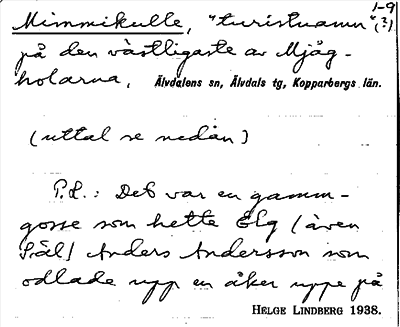 1-9
Mimmikulle, "turistnamn" (?)
på den västligaste av Mjåg-
holarna. Älvdalens sn, Älvdals tg, Kopparbergs län.
(uttal se nedan)
P.L.: Det var en gamm-
gosse som hette Elg (även
Sål) Anders Andersson som
odlade upp en åker uppe på
HELGE LINDBERG 1938.